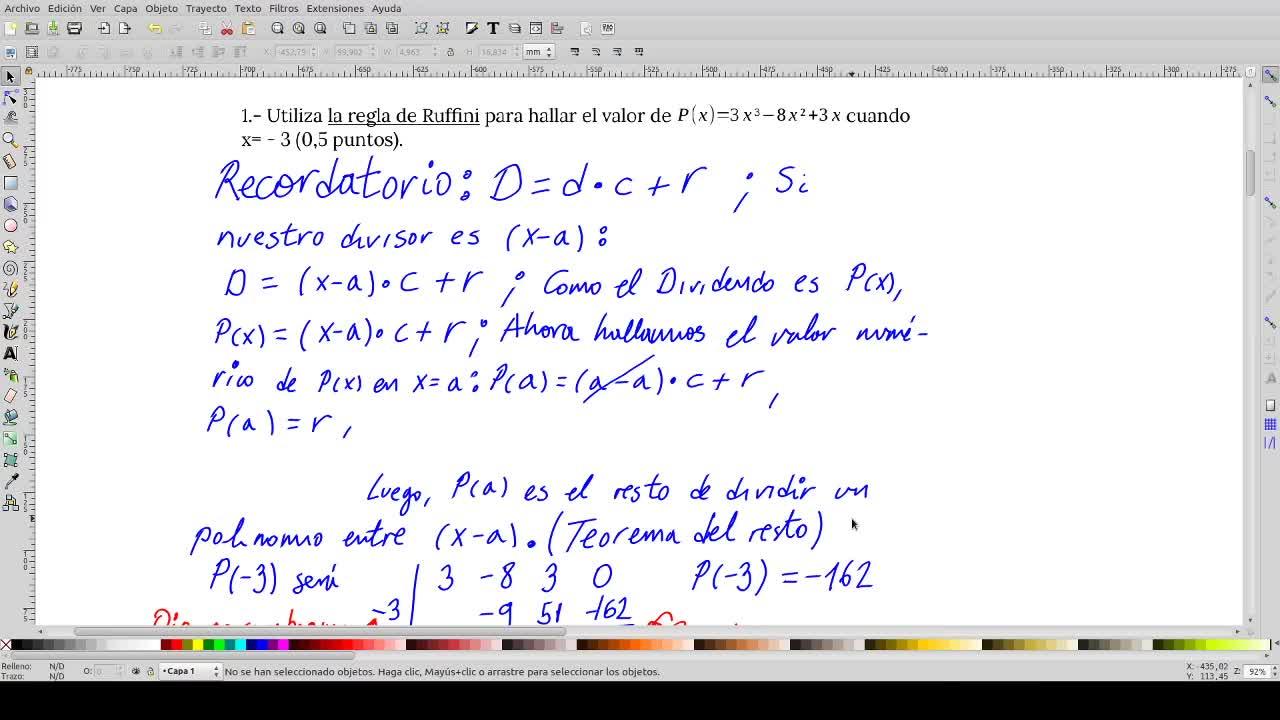 Archivo Edición Ver Capa Objeto Trayecto Texto Filtros Extensiones Ayuda
X: -452,75 Y: 99,902 W: 4,963 H: 16,834 mm
-775 -750 -725 -700 -675 -650 -625 -600 -575 -550 -525 -500 -475 -450 -425 -400 -375 -350 -325 -300 -275
1.- Utiliza la regla de Ruffini para hallar el valor de P(x)=3x³−8x²+3x cuando
x= - 3 (0,5 puntos).
Recordatorio: D = d·c + r ; Si
nuestro divisor es (x-a):
D = (x-a)·c + r ; Como el Dividendo es P(x),
P(x) = (x-a)·c + r ; Ahora hallamos el valor numé-
rico de P(x) en x=a: P(a) = (a-a)·c + r,
P(a) = r,
Luego, P(a) es el resto de dividir un
polinomio entre (x-a). (Teorema del resto)
P(-3) será 3 -8 3 0 P(-3) = -162
-3 -9 51 -162
Relleno: N/D
Trazo: N/D
O: 0
•Capa 1
No se han seleccionado objetos. Haga clic, Mayús+clic o arrastre para seleccionar los objetos.
X: -435,02
Y: 113,45
Z: 92%